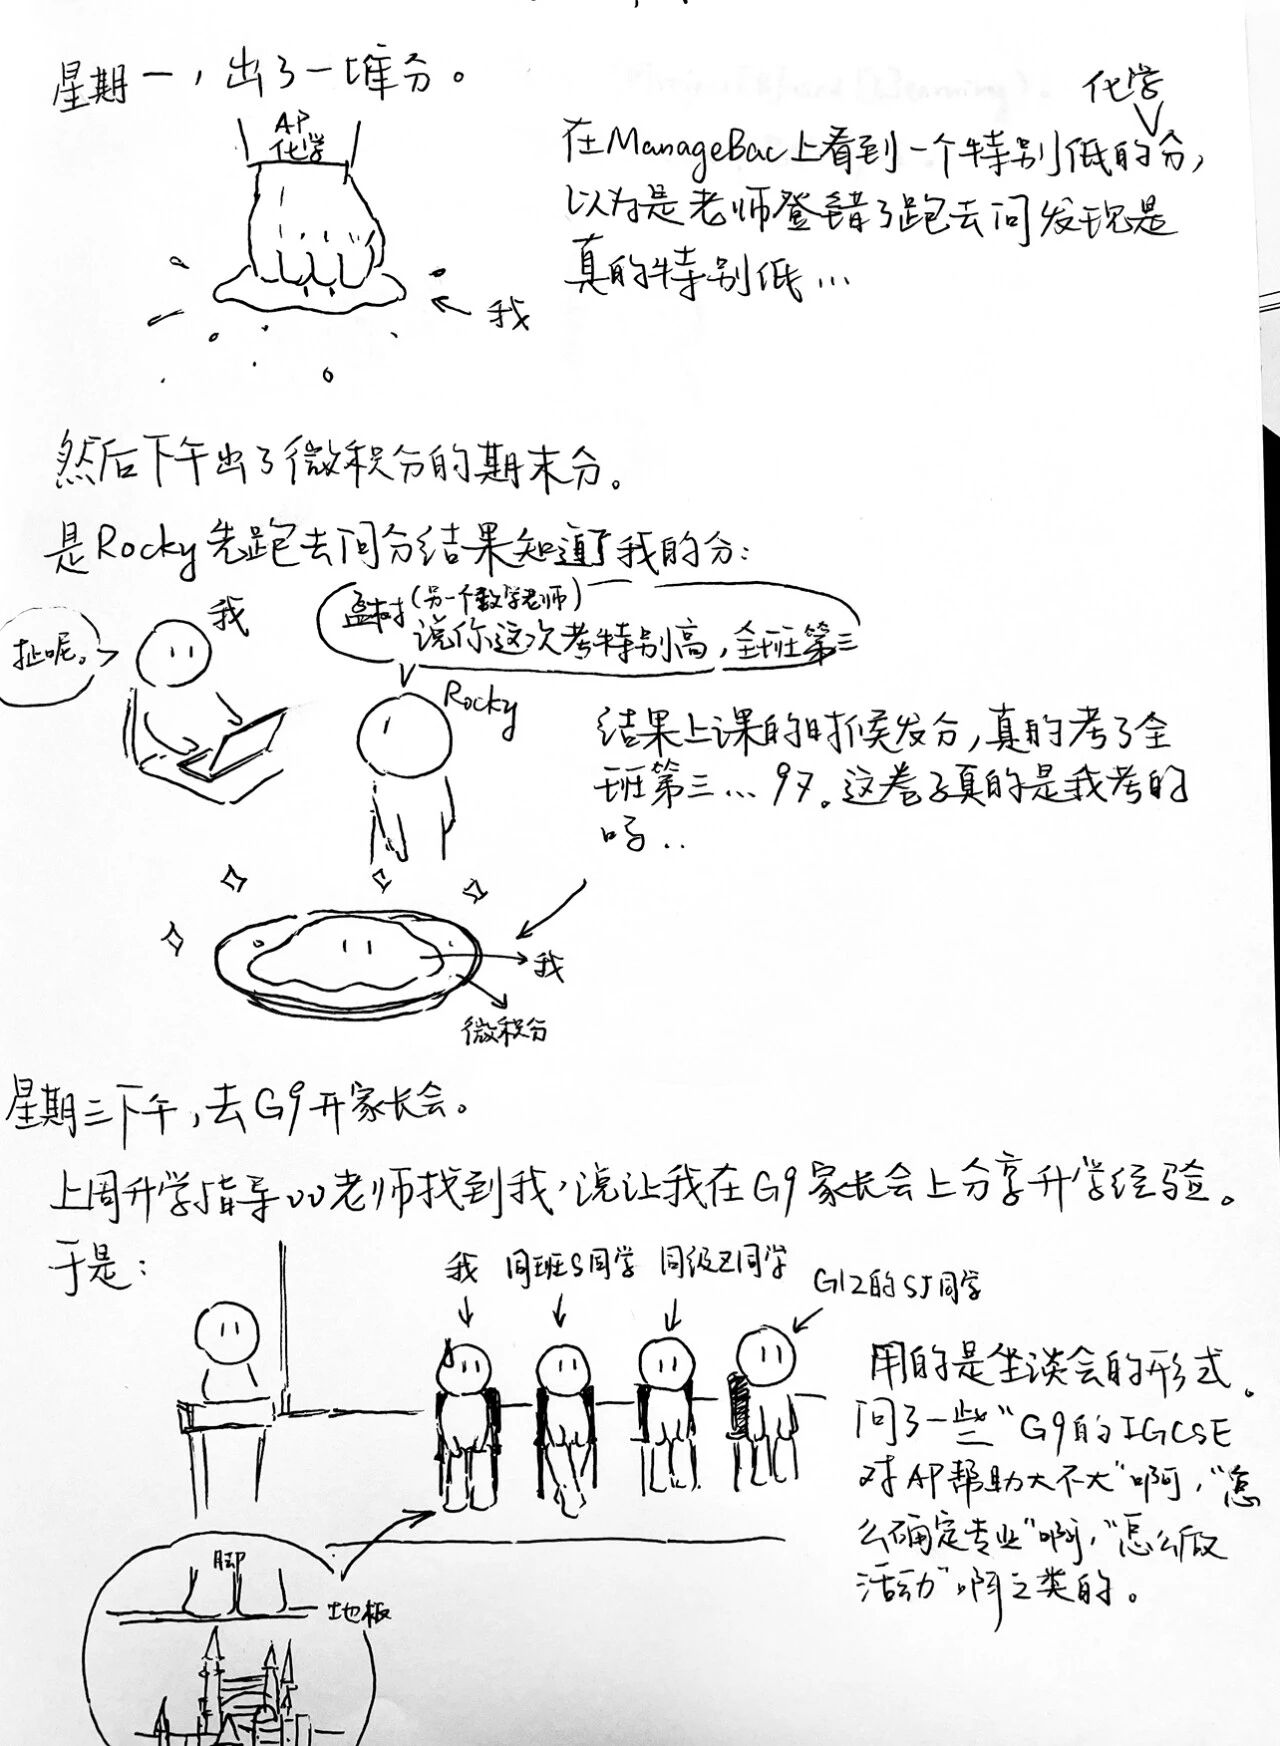 星期一，出了一堆分。
AP
化学
化学
在ManageBac上看到一个特别低的分，
以为是老师登错了跑去问发现是
真的特别低…
我
然后下午出了微积分的期末分。
是Rocky先跑去问分结果知道了我的分：
我
扯呢。
孟树(另一个数学老师)
说你这次考特别高，全班第三
Rocky
结果上课的时候发分，真的考了全
班第三…97。这卷子真的是我考的
吗..
我
微积分
星期三下午，去G9开家长会。
上周升学指导VV老师找到我，说让我在G9家长会上分享升学经验。
于是：
我 同班S同学 同级Z同学
G12的SJ同学
用的是坐谈会的形式。
问了一些“G9的IGCSE
对AP帮助大不大”啊，“怎
么确定专业”啊，“怎么做
活动”啊之类的。
脚
地板